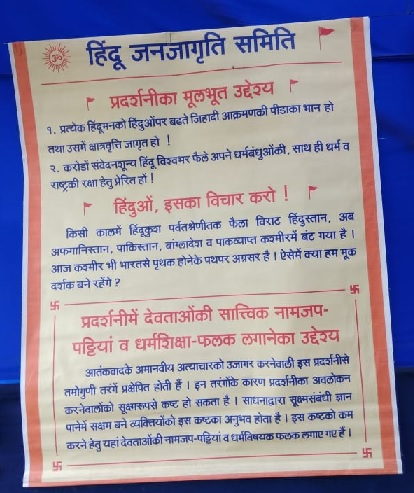 ॐ
हिंदू जनजागृति समिति
प्रदर्शनीका मूलभूत उद्देश्य
१. प्रत्येक हिंदूमनको हिंदुओंपर बढते जिहादी आक्रमणकी पीडाका भान हो
तथा उसमें क्षात्रवृत्ति जागृत हो !
२. करोडों संवेदनशून्य हिंदू विश्वभर फैले अपने धर्मबंधुओंकी, साथ ही धर्म व
राष्ट्रकी रक्षा हेतु प्रेरित हों !
हिंदुओं, इसका विचार करो !
किसी कालमें हिंदूकुश पर्वतश्रेणीतक फैला विराट हिंदुस्तान, अब
अफगानिस्तान, पाकिस्तान, बांग्लादेश व पाकव्याप्त कश्मीरमें बंट गया है ।
आज कश्मीर भी भारतसे पृथक होनेके पथपर अग्रसर है ! ऐसेमें क्या हम मूक
दर्शक बने रहेंगे ?
प्रदर्शनीमें देवताओंकी सात्त्विक नामजप-
पट्टियां व धर्मशिक्षा-फलक लगानेका उद्देश्य
आतंकवादके अमानवीय अत्याचारको उजागर करनेवाली इस प्रदर्शनीसे
तमोगुणी तरंगें प्रक्षेपित होती हैं । इन तरंगोंके कारण प्रदर्शनीका अवलोकन
करनेवालोंको सूक्ष्मरूपसे कष्ट हो सकता है । साधनाद्वारा सूक्ष्मसंबंधी ज्ञान
पानेमें सक्षम बने व्यक्तियोंको इस कष्टका अनुभव होता है । इस कष्टको कम
करने हेतु यहां देवताओंकी नामजप-पट्टियां व धर्मविषयक फलक लगाए गए हैं ।